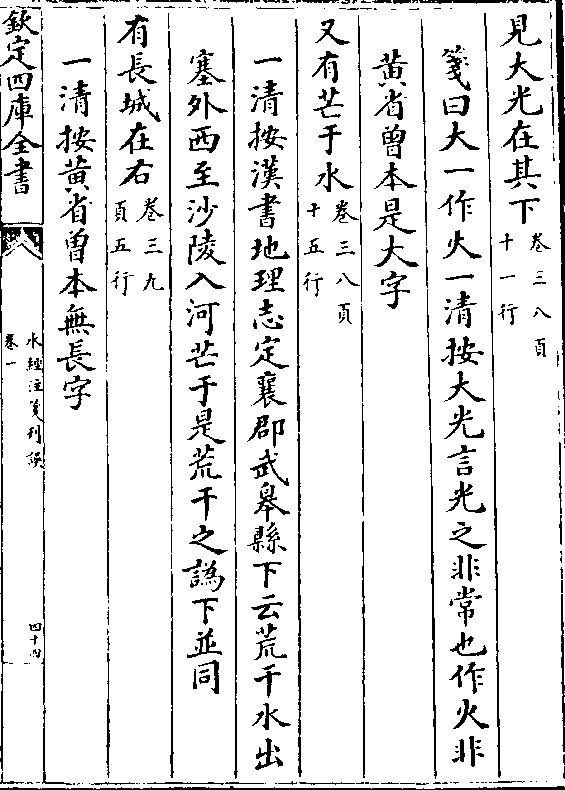 見大光在其下卷三八頁十一行
箋曰大一作火一清按大光言光之非常也作火非
黄省曾本是大字
又有芒于水卷三八頁十五行
一清按漢書地理志定襄郡武臯縣下云荒干水出
塞外西至沙陵入河芒于是荒干之譌下並同
有長城在右卷三九頁五行
一清按黄省曾本無長字
欽定四庫全書
水經注箋刋誤
卷一
四十四